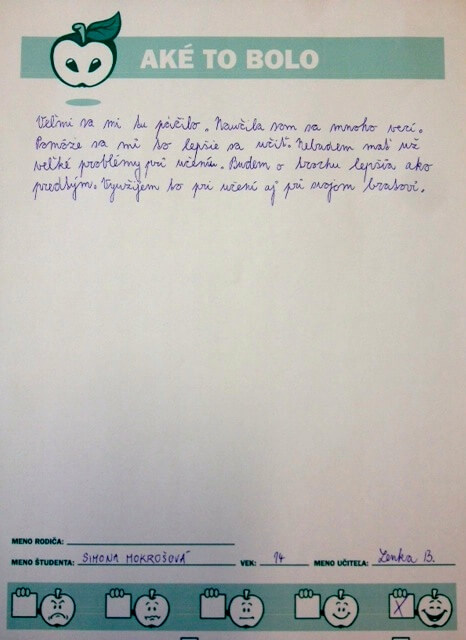 AKÉ TO BOLO
Veľmi sa mi tu páčilo. Naučila som sa mnoho vecí.
Pomôže sa mi to lepšie sa učiť. Nebudem mať už
veľké problémy pri učéniu. Budem o trochu lepšia ako
predtým. Využijem to pri učení aj pri svojom bratovi.
MENO RODIČA:
MENO ŠTUDENTA: SIMONA MOKROŠOVÁ VEK: 14 MENO UČITEĽA: Lenka B.
X